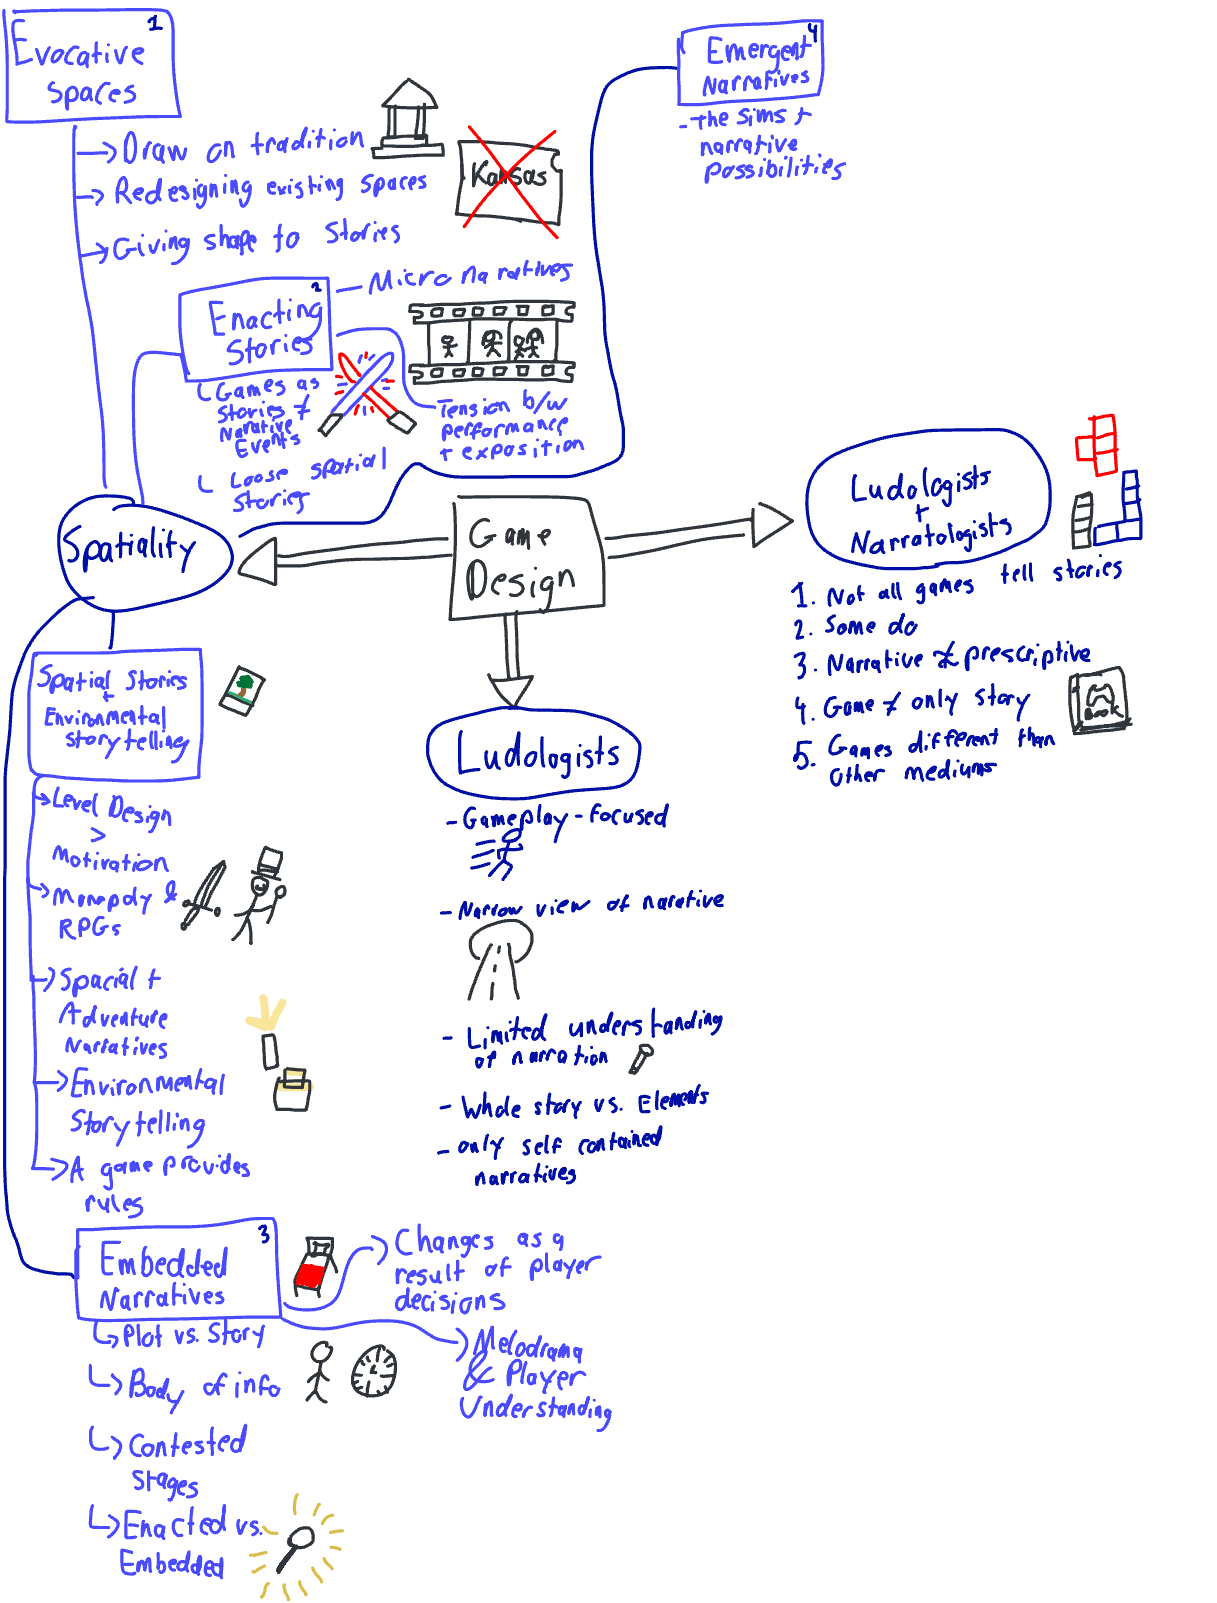 1
Evocative
Spaces
Draw on tradition
Redesigning existing spaces
Giving shape to Stories
Kansas
4
Emergent
Narratives
- The Sims +
narrative
possibilities
2
Enacting
Stories
Micro narratives
Games as
Stories ≠
Narrative
Events
Loose spatial
Stories
Tension b/w
performance
+ exposition
Spatiality
Game
Design
Ludologists
+
Narratologists
1. Not all games tell stories
2. Some do
3. Narrative ≠ prescriptive
4. Game ≠ only story
5. Games different than
other mediums
Book
Spatial Stories
+
Environmental
storytelling
Level Design
>
Motivation
Monopoly &
RPGs
Spacial +
Adventure
Narratives
Environmental
Storytelling
A game provides
rules
Ludologists
- Gameplay-focused
- Narrow view of narative
- Limited understanding
of narration
- Whole story vs. Elements
- only self contained
narratives
3
Embedded
Narratives
Plot vs. Story
Body of info
Contested
Stages
Enacted vs.
Embedded
Changes as a
result of player
decisions
Melodrama
& Player
Understanding